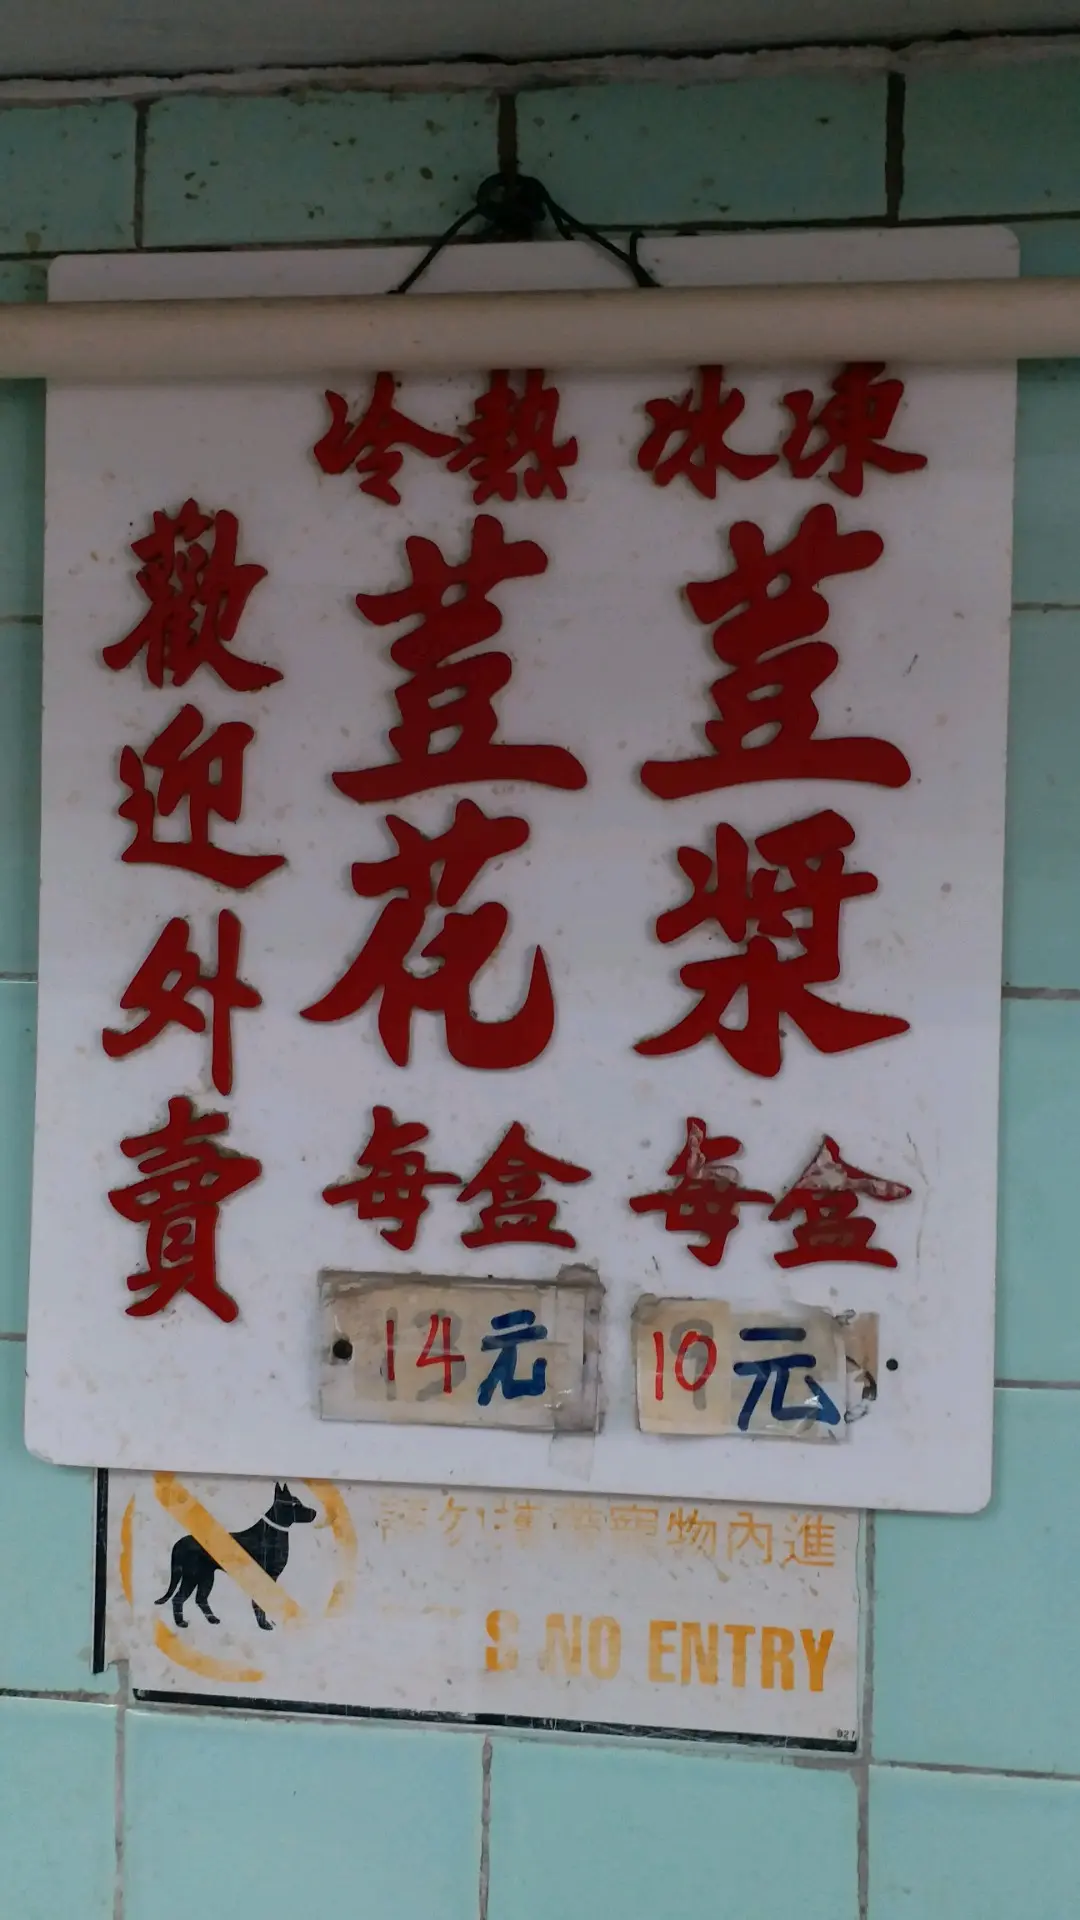 冰凍
荳漿
每盒
10元
冷熱
荳花
每盒
14元
歡迎外賣
請勿攜帶寵物內進
S NO ENTRY
927